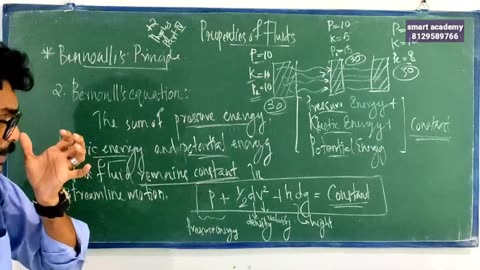 Properties of Fluids
smart academy
8129589766
* Bernoulli's Principle
P=10
K=10
P=10
30
P=10
K=5
30
=8
30
2. Bernoulli's equation:
The sum of pressure energy
ic energy and potential energy
fluid remaining constant in
streamline motion.
Pressure Energy +
Kinetic Energy
Potential Energy
Constant
P + 1/2 dv² + hdg = Constant
pressure energy
density
velocity
height